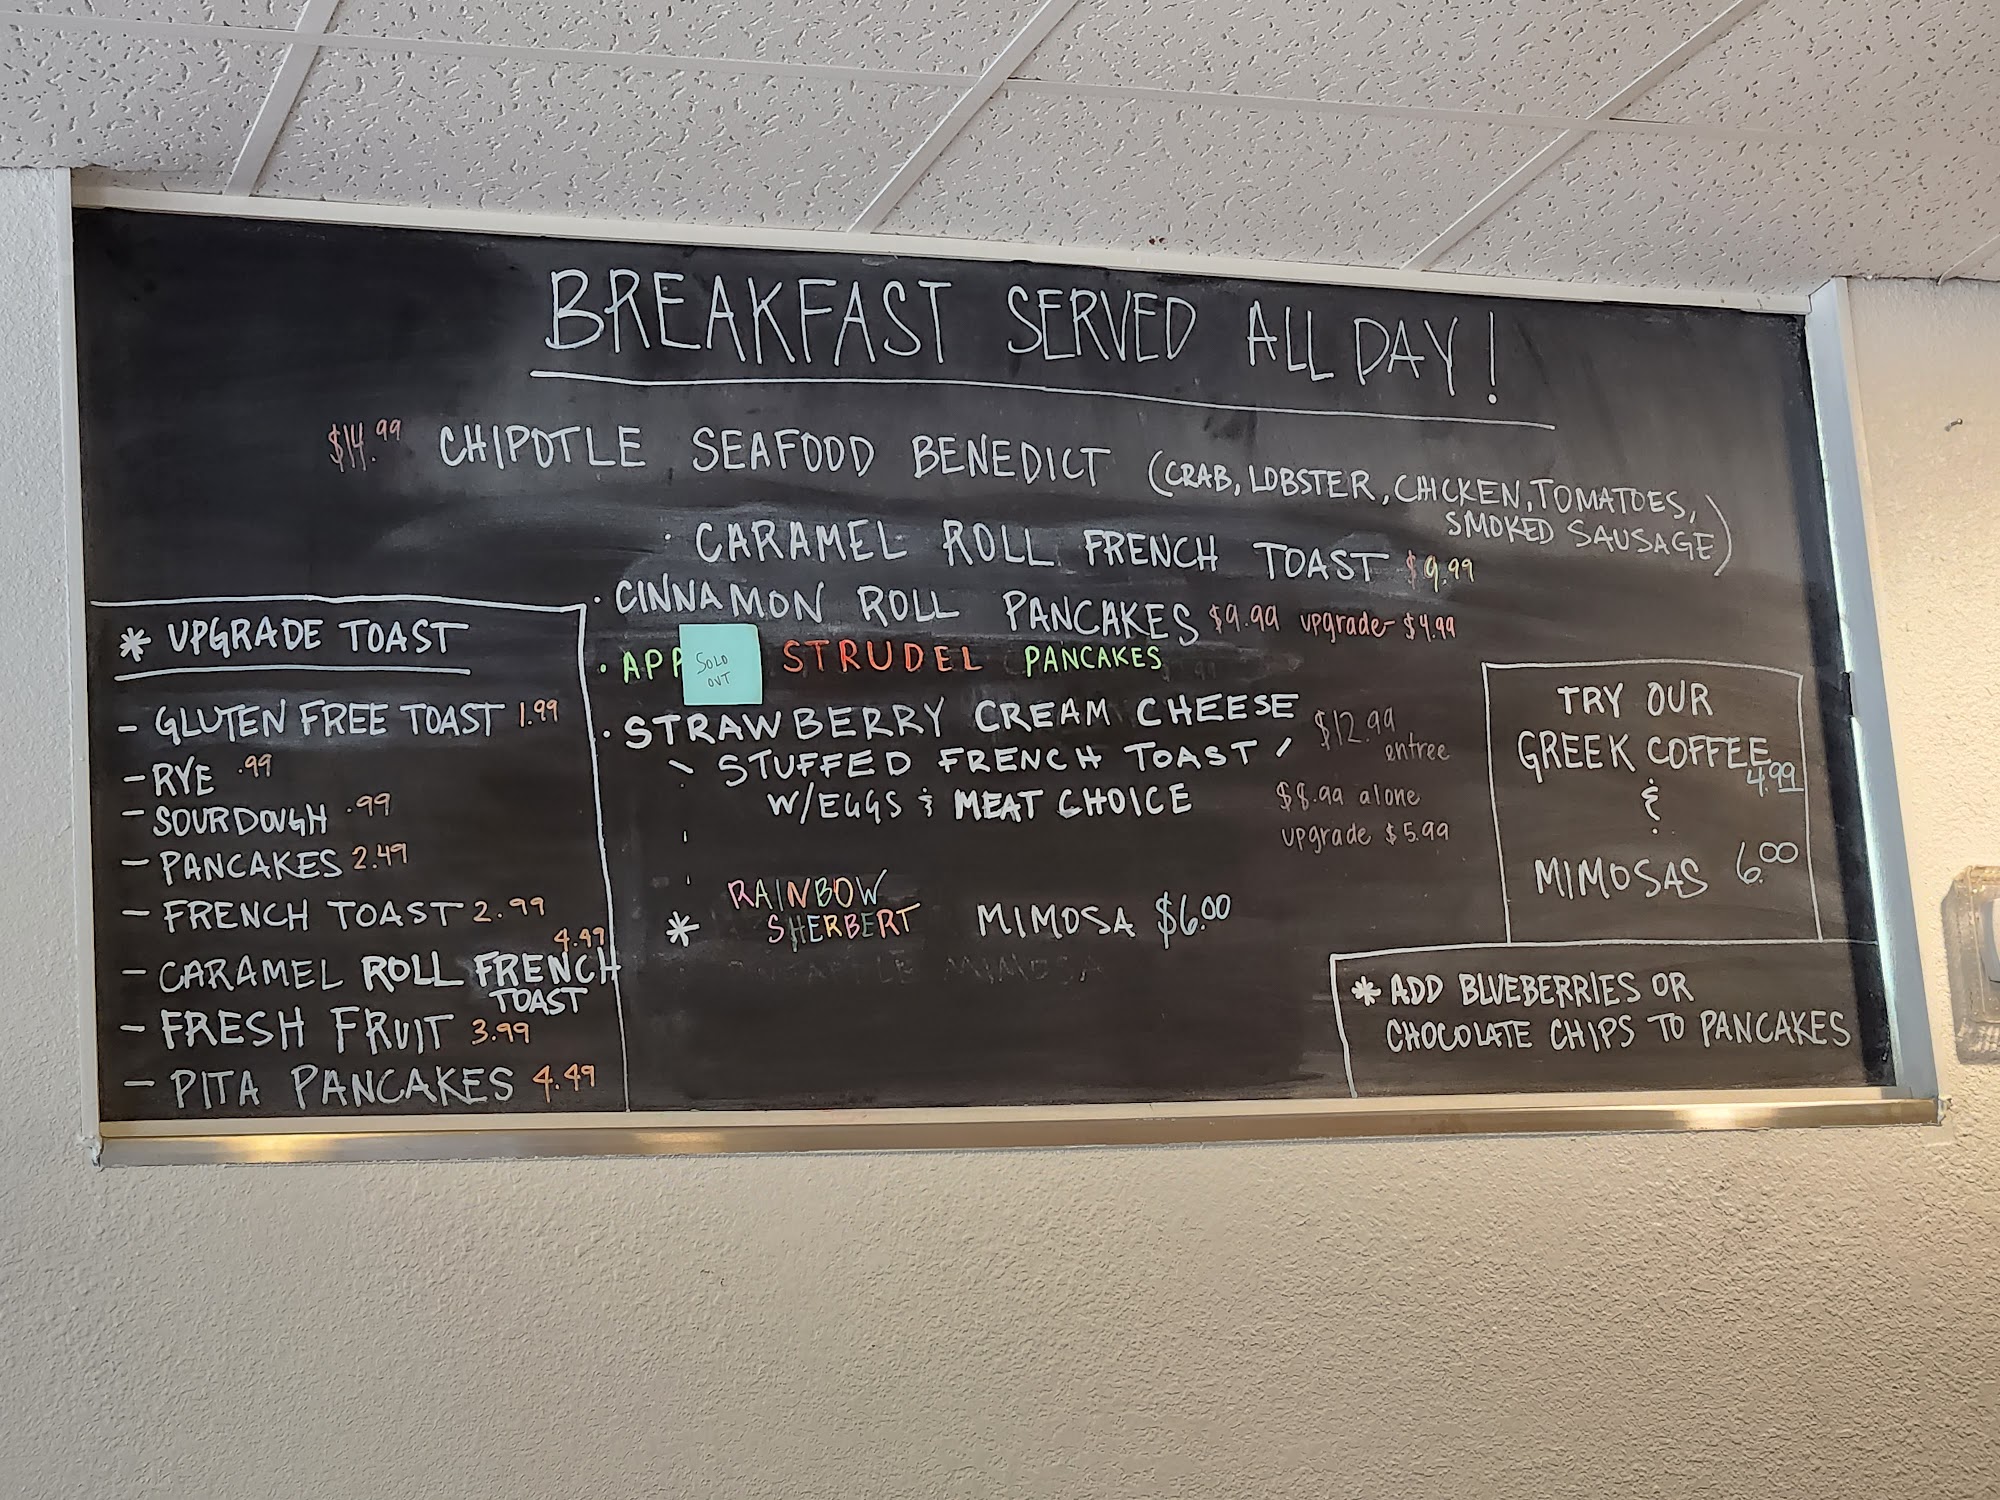 BREAKFAST SERVED ALL DAY!
$14.99 CHIPOTLE SEAFOOD BENEDICT (CRAB, LOBSTER, CHICKEN, TOMATOES,
SMOKED SAUSAGE)
· CARAMEL ROLL FRENCH TOAST $9.99
· CINNAMON ROLL PANCAKES $9.99 upgrade- $4.99
· APP STRUDEL PANCAKES
SOLD
OUT
· STRAWBERRY CREAM CHEESE
STUFFED FRENCH TOAST
W/EGGS & MEAT CHOICE
$12.99
entree
$8.99 alone
upgrade $5.99
* RAINBOW
SHERBERT MIMOSA $6.00
MIMOSA
* UPGRADE TOAST
- GLUTEN FREE TOAST 1.99
- RYE .99
- SOURDOUGH .99
- PANCAKES 2.49
- FRENCH TOAST 2.99
- CARAMEL ROLL FRENCH 4.49
TOAST
- FRESH FRUIT 3.99
- PITA PANCAKES 4.49
TRY OUR
GREEK COFFEE
4.99
&
MIMOSAS 6.00
* ADD BLUEBERRIES OR
CHOCOLATE CHIPS TO PANCAKES